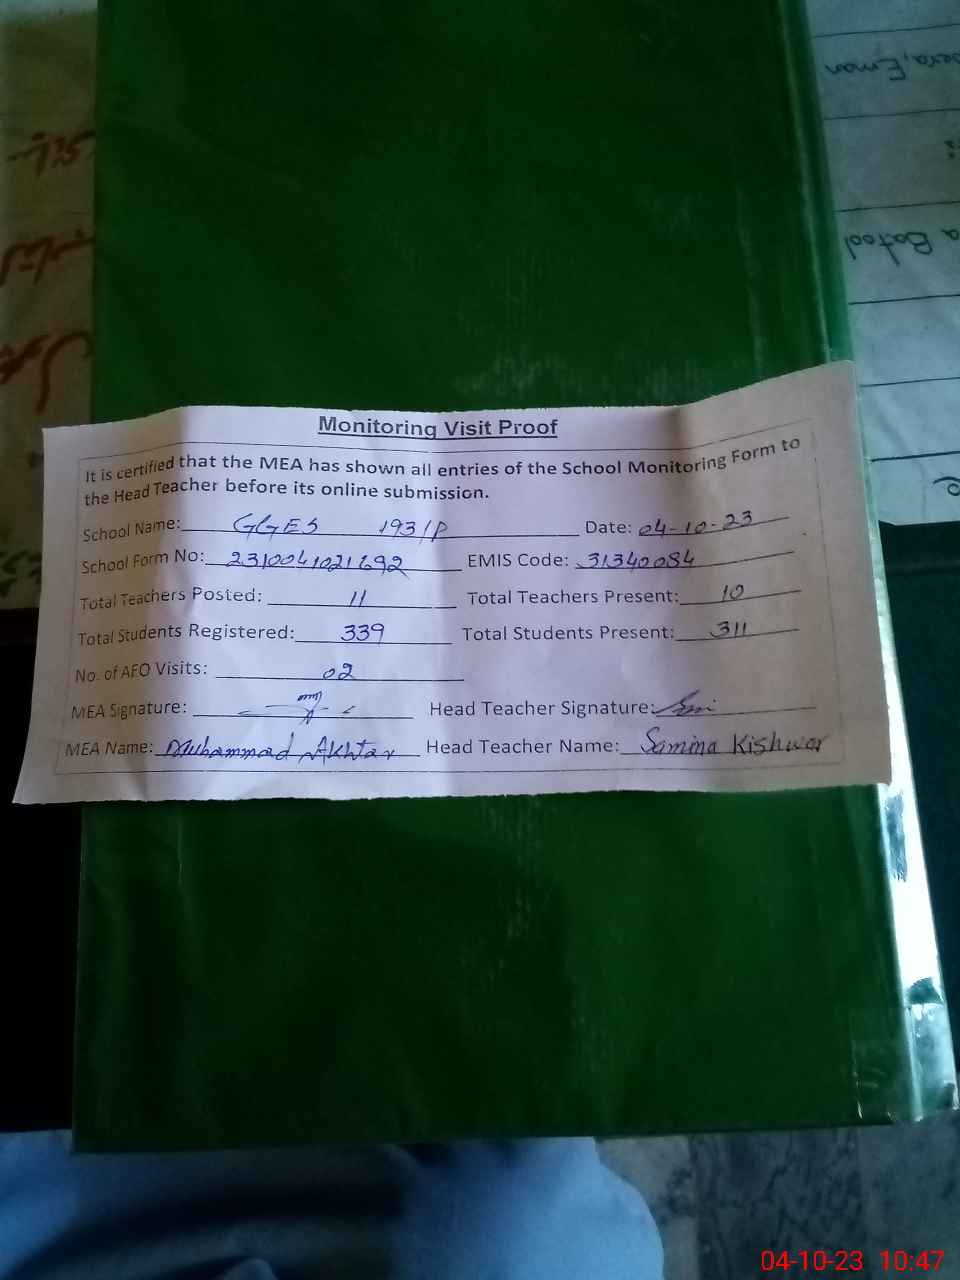 Monitoring Visit Proof
It is certified that the MEA has shown all entries of the School Monitoring Form to
the Head Teacher before its online submission.
School Name: GGES 193/P Date: 04-10-23
School Form No: 2310041021692 EMIS Code: 31340084
Total Teachers Posted: 11 Total Teachers Present: 10
Total Students Registered: 339 Total Students Present: 311
No. of AEO Visits: 02
MEA Signature: Head Teacher Signature:
MEA Name: Muhammad Akhtar Head Teacher Name: Samina Kishwar
Eman
Batool
04-10-23 10:47